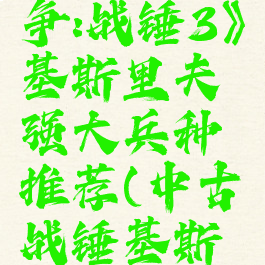 争:战锤3》
基斯里夫
强大兵种
推荐(中古
战锤基斯